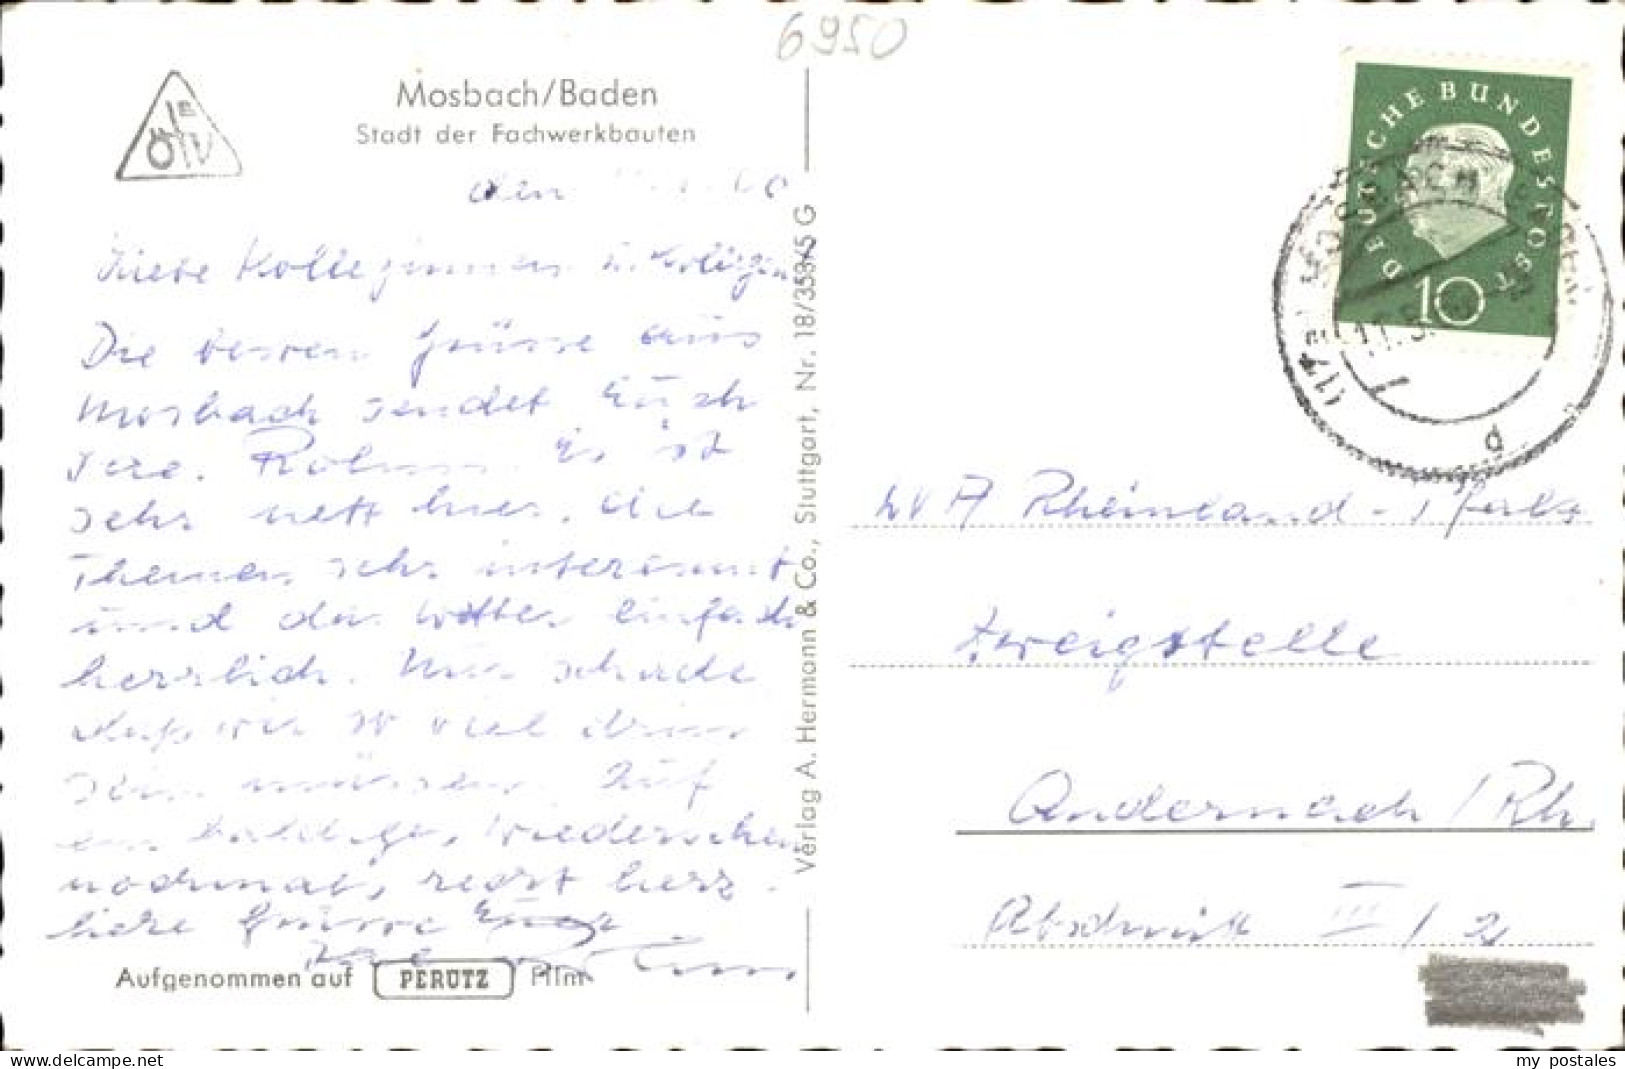 6950
Mosbach/Baden
Stadt der Fachwerkbauten
den
Liebe Kolleginnen u. Kollegen
Die besten Grüsse aus
Mosbach sendet Euch
Ihre. Es ist
sehr nett hier, die
Themen sehr interessant
und das Wetter einfach
herrlich. Nur schade
daß wir so viel drin
sein müssen. Auf
ein baldiges Wiedersehen
nochmals recht herz-
liche Grüsse Euer
Aufgenommen auf PERUTZ Film
Verlag A. Hermann & Co., Stuttgart, Nr. 18/358/45 G
DEUTSCHE BUNDESPOST
10
MOSBACH
d
LVA Rheinland-Pfalz
Zweigstelle
Andernach/Rh.
Abschnitt III/2
delcampe.net
my_postales